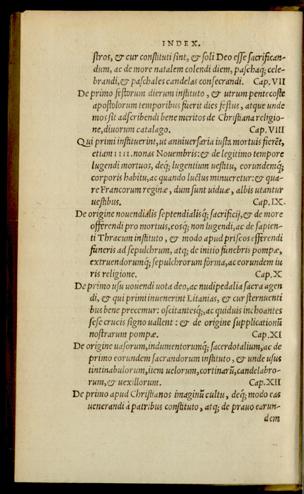 INDEX.
stros, & cur constituti sint, & soli Deo esse sacrifican-
dum, ac de more natalem colendi diem, paschaq; cele-
brandi, & paschales candelas consecrandi. Cap. VII
De primo festorum dierum instituto, & utrum pentecoste
apostolorum temporibus fuerit dies festus, atque unde
mos sit adscribendi bene meritos de Christiana religio-
ne, diuorum catalago. Cap. VIII
Qui primi instituerint, ut anniuersaria iusta mortuis fierēt,
etiam IIII. nonas Nouembris: & de legitimo tempore
lugendi mortuos, deq; lugentium uestitu, eorundemq;
corporis habitu, ac quando luctus minueretur: & qua-
re Francorum reginæ, dum sunt uiduæ, albis utantur
uestibus. Cap. IX.
De origine nouendialis septendialisq; sacrificij, & de more
offerendi pro mortuis, eosq; non lugendi, ac de sapien-
ti Thracum instituto, & modo apud priscos efferendi
funeris ad sepulchrum, atq; de initio funebris pompæ,
extruendorumq; sepulchrorum forma, ac eorundem iu
ris religione. Cap. X
De primo usu uouendi uota deo, ac nudipedalia sacra agen
di, & qui primi inuenerint Litanias, & cur sternuenti
bus bene precemur: oscitantesq;, ac quiduis inchoantes
sese crucis signo uallent: & de origine supplicationū
nostrarum pompæ. Cap. XI
De origine uasorum, indumentorumq; sacerdotalium, ac de
primo eorundem sacrandorum instituto, & unde usus
tintinabulorum, item uelorum, cortinarū, candelabro-
rum, & uexillorum. Cap. XII
De primo apud Christianos imaginū cultu, deq; modo eas
uenerandi à patribus constituto, atq; de prauo earun-
dem